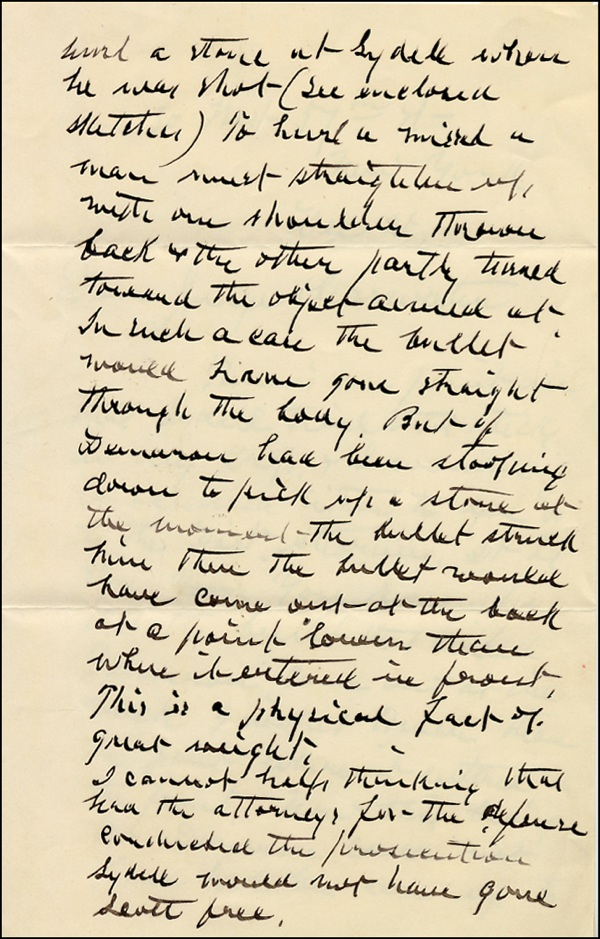 hurl a stone at Sydell when
he was shot (see enclosed
sketches) To hurl a missel a
man must straighten up,
with one shoulder thrown
back & the other partly turned
toward the object aimed at.
In such a case the bullet
would have gone straight
through the body. But if
had been stooping
down to pick up a stone at
the moment the bullet struck
him then the bullet would
have come out at the back
at a point lower than
where it entered in front.
This is a physical fact of
great weight.
I cannot help thinking that
had the attorneys for the defense
conducted the prosecution
Sydell would not have gone
scott free.